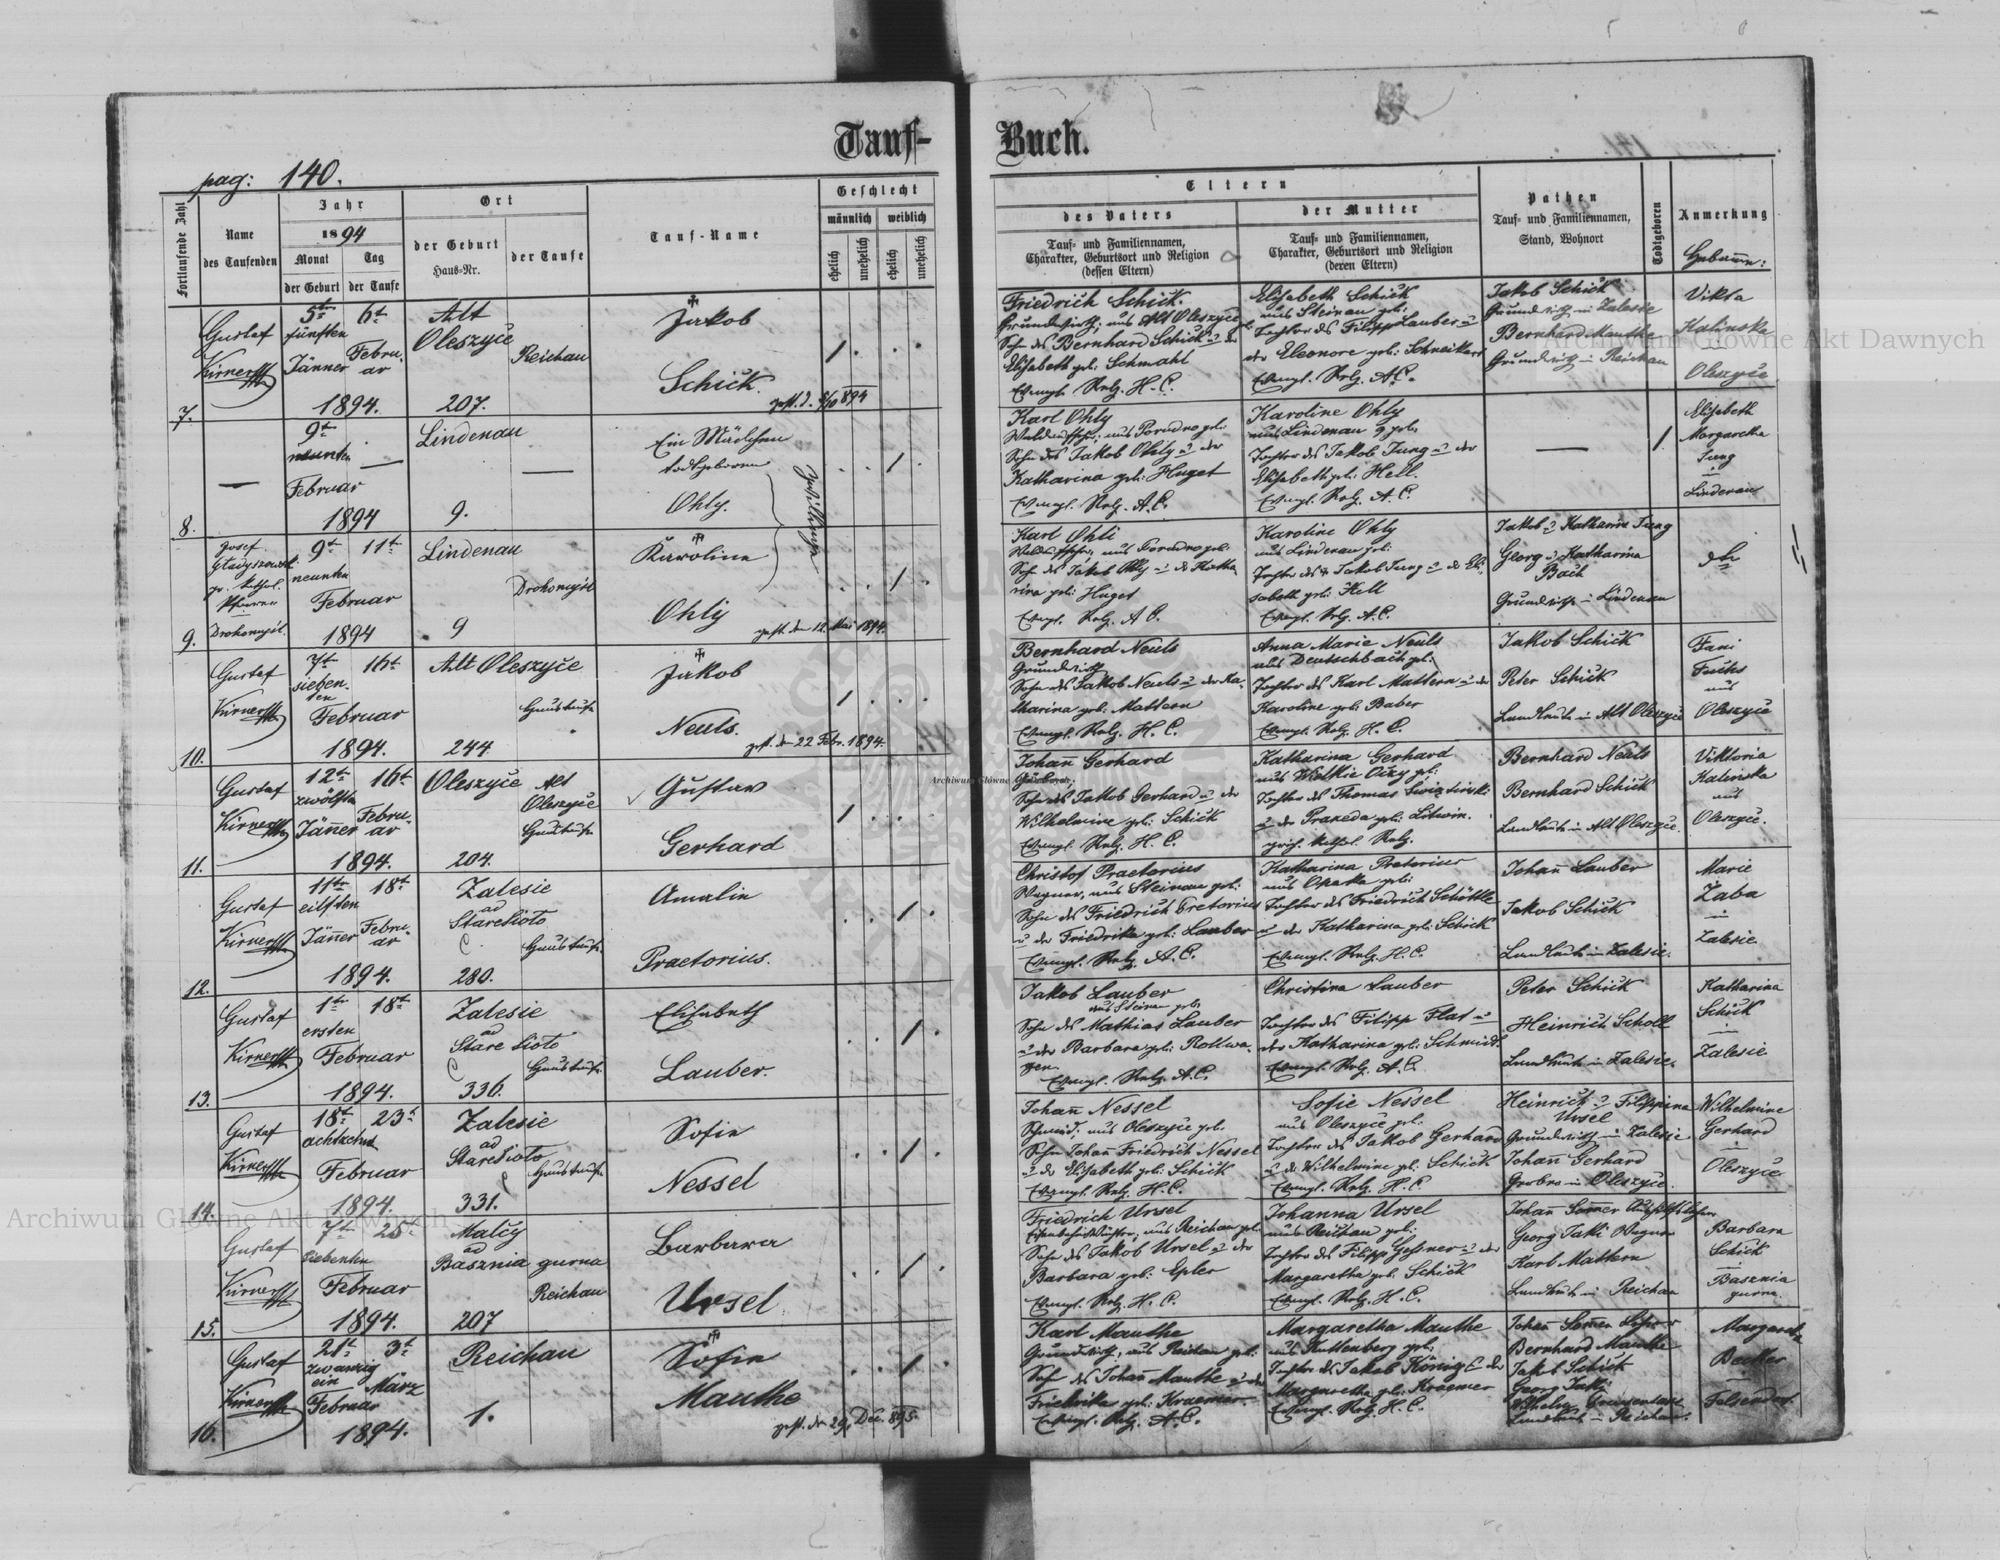 Tauf-Buch.
pag: 140.
Fortlaufende Zahl
Name
des Taufenden
Jahr
1894
Monat
Tag
der Geburt
der Taufe
Ort
der Geburt
Haus-Nr.
der Taufe
Tauf-Name
Geschlecht
männlich
weiblich
ehelich
unehelich
ehelich
unehelich
Eltern
des Vaters
Tauf- und Familiennamen,
Charakter, Geburtsort und Religion
(dessen Eltern)
der Mutter
Tauf- und Familiennamen,
Charakter, Geburtsort und Religion
(deren Eltern)
Pathen
Tauf- und Familiennamen,
Stand, Wohnort
Todtgeboren
Anmerkung
7.
Gustaf
Kirner
5te
fünften
Jänner
1894.
6te
Febru-
ar
Alt
Oleszyce
207.
Reichau
Jakob
Schick.
gest. d. 8/10 894
Friedrich Schick.
Grundwirth, aus Alt Oleszyce
Sohn des Bernhard Schick u der
Elisabeth geb. Schmahl
Evangl. Relg. H. C.
Elisabeth Schick
aus Steinau geb.
Tochter des Filipp Lauber u
der Eleonore geb.
Evangl. Relg. A. C.
Jakob Schick
Grundwirth in Zalesie
Bernhard Mauthe
Grundwirth in Reichau
Vikta
Kalinska
Oleszyce
8.
9te
neunten
Februar
1894
Lindenau
9.
Ein Mädchen
todtgeboren
Ohly.
Zwillinge
Karl Ohly
Sohn des Jakob Ohly u der
Katharina geb. Huget
Evangl. Relg. A. C.
Karoline Ohly
aus Lindenau 9 geb.
Tochter des Jakob Jung u der
Elisabeth geb. Hell.
Evangl. Relg. A. C.
Elisabeth
Margaretha
Jung
in
Lindenau
9.
Josef
gr. kathol.
Pfarrer
Drohomyśl.
9te
neunten
Februar
1894
11te
Lindenau
9
Drohomyśl
Karoline
Ohly
gest. den 12. Mai 1894.
Karl Ohli
Sohn des Jakob Ohly u der Katha-
rina geb. Huget
Evangl. Relg. A C.
Karoline Ohly
aus Lindenau geb.
Tochter des Jakob Jung u der Eli-
sabeth geb. Hell
Evangl. Relg. A. C.
Jakob u Katharina Jung
Georg u Katharina
Bach
Grundwirthe in Lindenau
10.
Gustaf
Kirner
7te
sieben-
ten
Februar
1894.
16te
Alt Oleszyce
244.
Haustaufe
Jakob
Neuls.
gest. den 22 Febr. 1894.
Bernhard Neuls
Grundwirth
Sohn des Jakob Neuls u der Ka-
tharina geb. Mattern
Evangl. Relg. H. C.
Anna Marie Neuls
aus Deutschbach geb.
Tochter des Karl Mattern u der
Karoline geb. Baber
Evangl. Relg. H. C.
Jakob Schick
Peter Schick
Landleute in Alt Oleszyce
Fani
Fuchs
aus
Oleszyce
11.
Gustaf
Kirner
12te
zwölften
Jänner
1894.
16te
Febru-
ar
Oleszyce
204.
Alt
Oleszyce
Haustaufe
Gustav
Gerhard
Johann Gerhard
Sohn des Jakob Gerhard u der
Wilhelmine geb. Schick
Evangl. Relg. H. C.
Katharina Gerhard
aus Wielkie Oczy geb.
Tochter des Thomas
u der Praxeda geb. Litwin.
griech. kathol. Relg.
Bernhard Neuls
Bernhard Schick
Landleute in Alt Oleszyce.
Viktoria
Kalinska
aus
Oleszyce.
12.
Gustaf
Kirner
11te
eilften
Jänner
1894.
18te
Febru-
ar
Zalesie
ad
Stare Sioło
280.
Haustaufe.
Amalie
Praetorius.
Christof Praetorius
Wagner, aus Steinau geb.
Sohn des Friedrich Pretorius
u der Friedrika geb. Lauber
Evangl. Relg. A. C.
Katharina Pretorius
aus Opaka geb.
Tochter des Friedrich Schöttle
u der Katharina geb. Schick
Evangl. Relg. H. C.
Johann Lauber
Jakob Schick
Landleute in Zalesie.
Marie
Zaba
in
Zalesie
13.
Gustaf
Kirner
1te
ersten
Februar
1894.
18te
Zalesie
ad
Stare Sioło
336.
Haustaufe
Elisabeth
Lauber.
Jakob Lauber
aus Steinau geb.
Sohn des Mathias Lauber
u der Barbara geb. Rollwa-
gen.
Evangl. Relg. A. C.
Christina Lauber
Tochter des Filipp Flat u
der Katharina geb. Schmidt.
Evangl. Relg. A. C.
Peter Schick
Heinrich Scholl
Landleute in Zalesie.
Katharina
Schick
in
Zalesie
14.
Gustaf
Kirner
18te
achtzehnt
Februar
1894.
23te
Zalesie
ad
Stare Sioło
331.
Haustaufe
Sofie
Nessel
Johann Nessel
Schmied, aus Oleszyce geb.
Sohn Johann Friedrich Nessel
u der Elisabeth geb. Schick
Evangl. Relg. H. C.
Sofie Nessel
aus Oleszyce geb.
Tochter des Jakob Gerhard
u der Wilhelmine geb. Schick
Evangl. Relg. H. C.
Heinrich u Filippine
Ursel
Grundwirth in Zalesie
Johann Gerhard
in Oleszyce.
Wilhelmine
Gerhard
in
Oleszyce
15.
Gustaf
Kirner
7te
siebenten
Februar
1894.
25te
Malcy
ad
Basznia gurna
207
Reichau
Barbara
Ursel.
Friedrich Ursel
aus Reichau geb.
Sohn des Jakob Ursel u der
Barbara geb. Epler
Evangl. Relg. H. C.
Johanna Ursel
aus Reichau geb.
Tochter des Filipp Geßner u der
Margaretha geb. Schick
Evangl. Relg. H. C.
Georg Jaki Wagner
Karl Mattern
Landleute in Reichau
Barbara
Schick
in
Basznia
gurna.
16.
Gustaf
Kirner
21te
zwanzig
ein
Februar
1894.
3te
März
Reichau
1.
Sofie
Mauthe
gest. den 29. Dec. 895.
Karl Mauthe
Grundwirth, aus Reichau geb.
Sohn des Johann Mauthe u der
Friedrike geb. Kraemer.
Evangl. Relg. A. C.
Margaretha Mauthe
aus Kuttenberg geb.
Tochter des Jakob König u der
Margaretha geb. Kraemer
Evangl. Relg. H. C.
Bernhard Mauthe
Jakob Schick
Georg Jaki
Landleute in Reichau.
Margareta
Becker
in
Felsendorf.
Archiwum Główne Akt Dawnych
Archiwum Główne Akt Dawnych